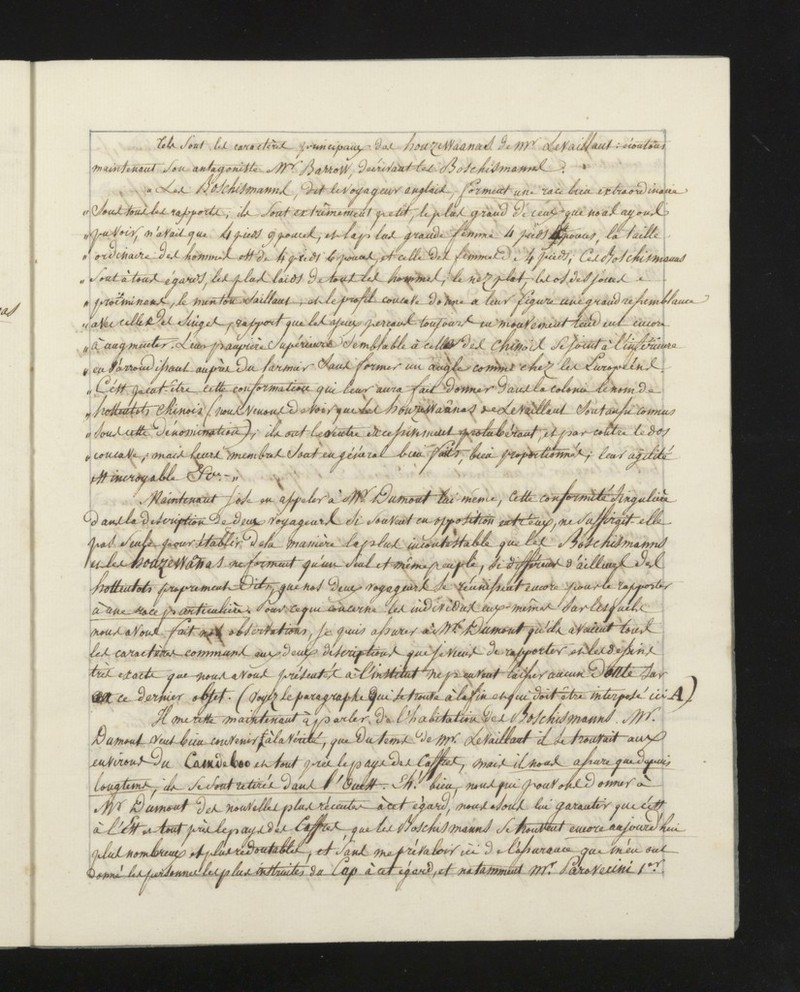 as
Tels sont les caractères principaux des houzwaanas de Mr. Levaillant: écoutons
maintenant son antagoniste Mr. Barrow, décrivant les Boschismanns.
" Les Boschismanns, dit le voyageur anglais, forment une race bien extraordinaire
" sous tous les rapports, ils sont extrêmement petits, le plus grand de ceux que nous ayons
" pu voir, n'avait que 4 pieds 9 pouces, et la plus grande femme 4 pieds 4 pouces, la taille
" ordinaire des hommes est de 4 pieds 6 pouces, et celle des femmes de 4 pieds, Ces Boschismanns
" sont à tous égards, les plus laids de tous les hommes, le nez plat, les os des joues
" proéminens, le menton saillant, et le profil concave donne à leur figure une grande ressemblance
" avec celle des singes, rapport que les yeux perçans toujours en mouvement tend encore
" à augmenter. Leur paupière supérieure semblable à celle des chinois se joint à l'inférieure
" en s'arrondissant auprès du larmier sans former un angle comme chez les Européens.
" C'est peut être cette conformation qui leur aura fait donner dans la colonie le nom de
" hottentots chinois, (nous venons de voir que les houzwaanas de Levaillant sont aussi connus
" sous cette dénomination); ils ont le ventre excessivement protubérant, et par contre le dos
" concave, mais leurs membres sont en général bien faits, bien proportionnés; leur agilité
" est incroyable &c. "
Maintenant j'ose en appeler à Mr. Dumont lui même, Cette conformité singulière
dans la description de deux voyageurs si souvent en opposition entr'eux, ne suffirait elle
pas seule pour établir de la manière la plus incontestable que les Boschismanns
et les houzwanas ne forment qu'un seul et même peuple, si différent d'ailleurs des
hottentots proprement dits, que nos deux voyageurs se réunissent encore pour le rapporter
à une race particulière. Pour ce qui concerne les individus eux mêmes sur lesquels
nous avons fait nos observations, je puis assurer à Mr. Dumont qu'ils avaient tous
les caractères communs aux deux descriptions que je viens de rapporter et les dessins
très exacts que nous avons présentés à l'institut ne peuvent laisser aucun doute sur
ce dernier objet. (voyez le paragraphe qui se trouve à la fin et qui doit être interposé ici A)
Il me reste maintenant à parler, de l'habitation des Boschismanns. Mr.
Dumont veut bien convenir à la vérité, que du tems de Mr. Levaillant il se trouvait aux
environs du Camdeboo et tout près le pays des Caffres, mais il nous assure que depuis
longtems, ils se sont retirés dans l'Ouest. Eh! bien, nous qui pouvons donner à
Mr Dumont des nouvelles plus récentes à cet égard, nous osons lui garantir que c'est
à l'Est et tout près le pays des Caffres que les Boschismanns se trouvent encore aujourd'hui
plus nombreux et plus redoutables, et sans me prévaloir ici de l'assurance que m'en ont
donné les personnes les plus instruites du Cap à cet égard, et notamment Mr. Parovecini 1er